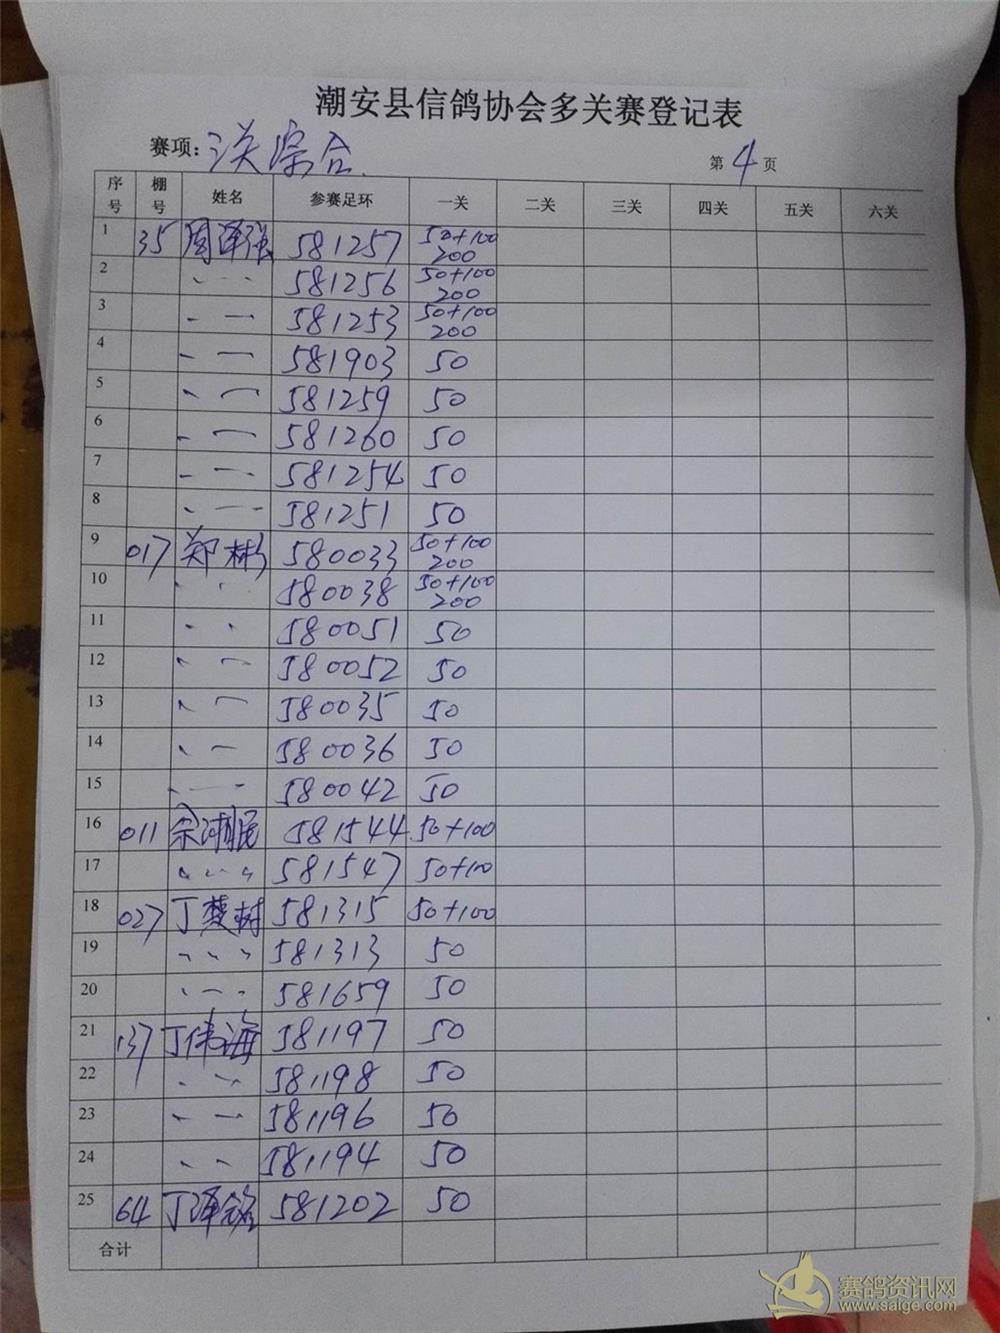 潮安县信鸽协会多关赛登记表
赛项: 三关综合 第 4 页
序号 棚号 姓名 参赛足环 一关 二关 三关 四关 五关 六关
1 35 周泽强 581257 50+100 200
2 581256 50+100 200
3 581253 50+100 200
4 581903 50
5 581259 50
6 581260 50
7 581254 50
8 581251 50
9 017 郑彬 580033 50+100 200
10 580038 50+100 200
11 580051 50
12 580052 50
13 580035 50
14 580036 50
15 580042 50
16 011 581544 50+100
17 581547 50+100
18 027 丁楚树 581315 50+100
19 581313 50
20 581659 50
21 137 丁伟海 581197 50
22 581198 50
23 581196 50
24 581194 50
25 64 丁泽铭 581202 50
合计
赛鸽资讯网
www.saige.com